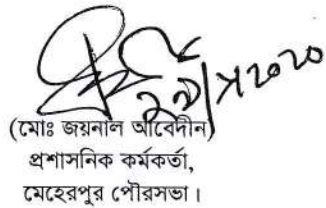 (মোঃ জয়নাল আবেদীন)
প্রশাসনিক কর্মকর্তা,
মেহেরপুর পৌরসভা।